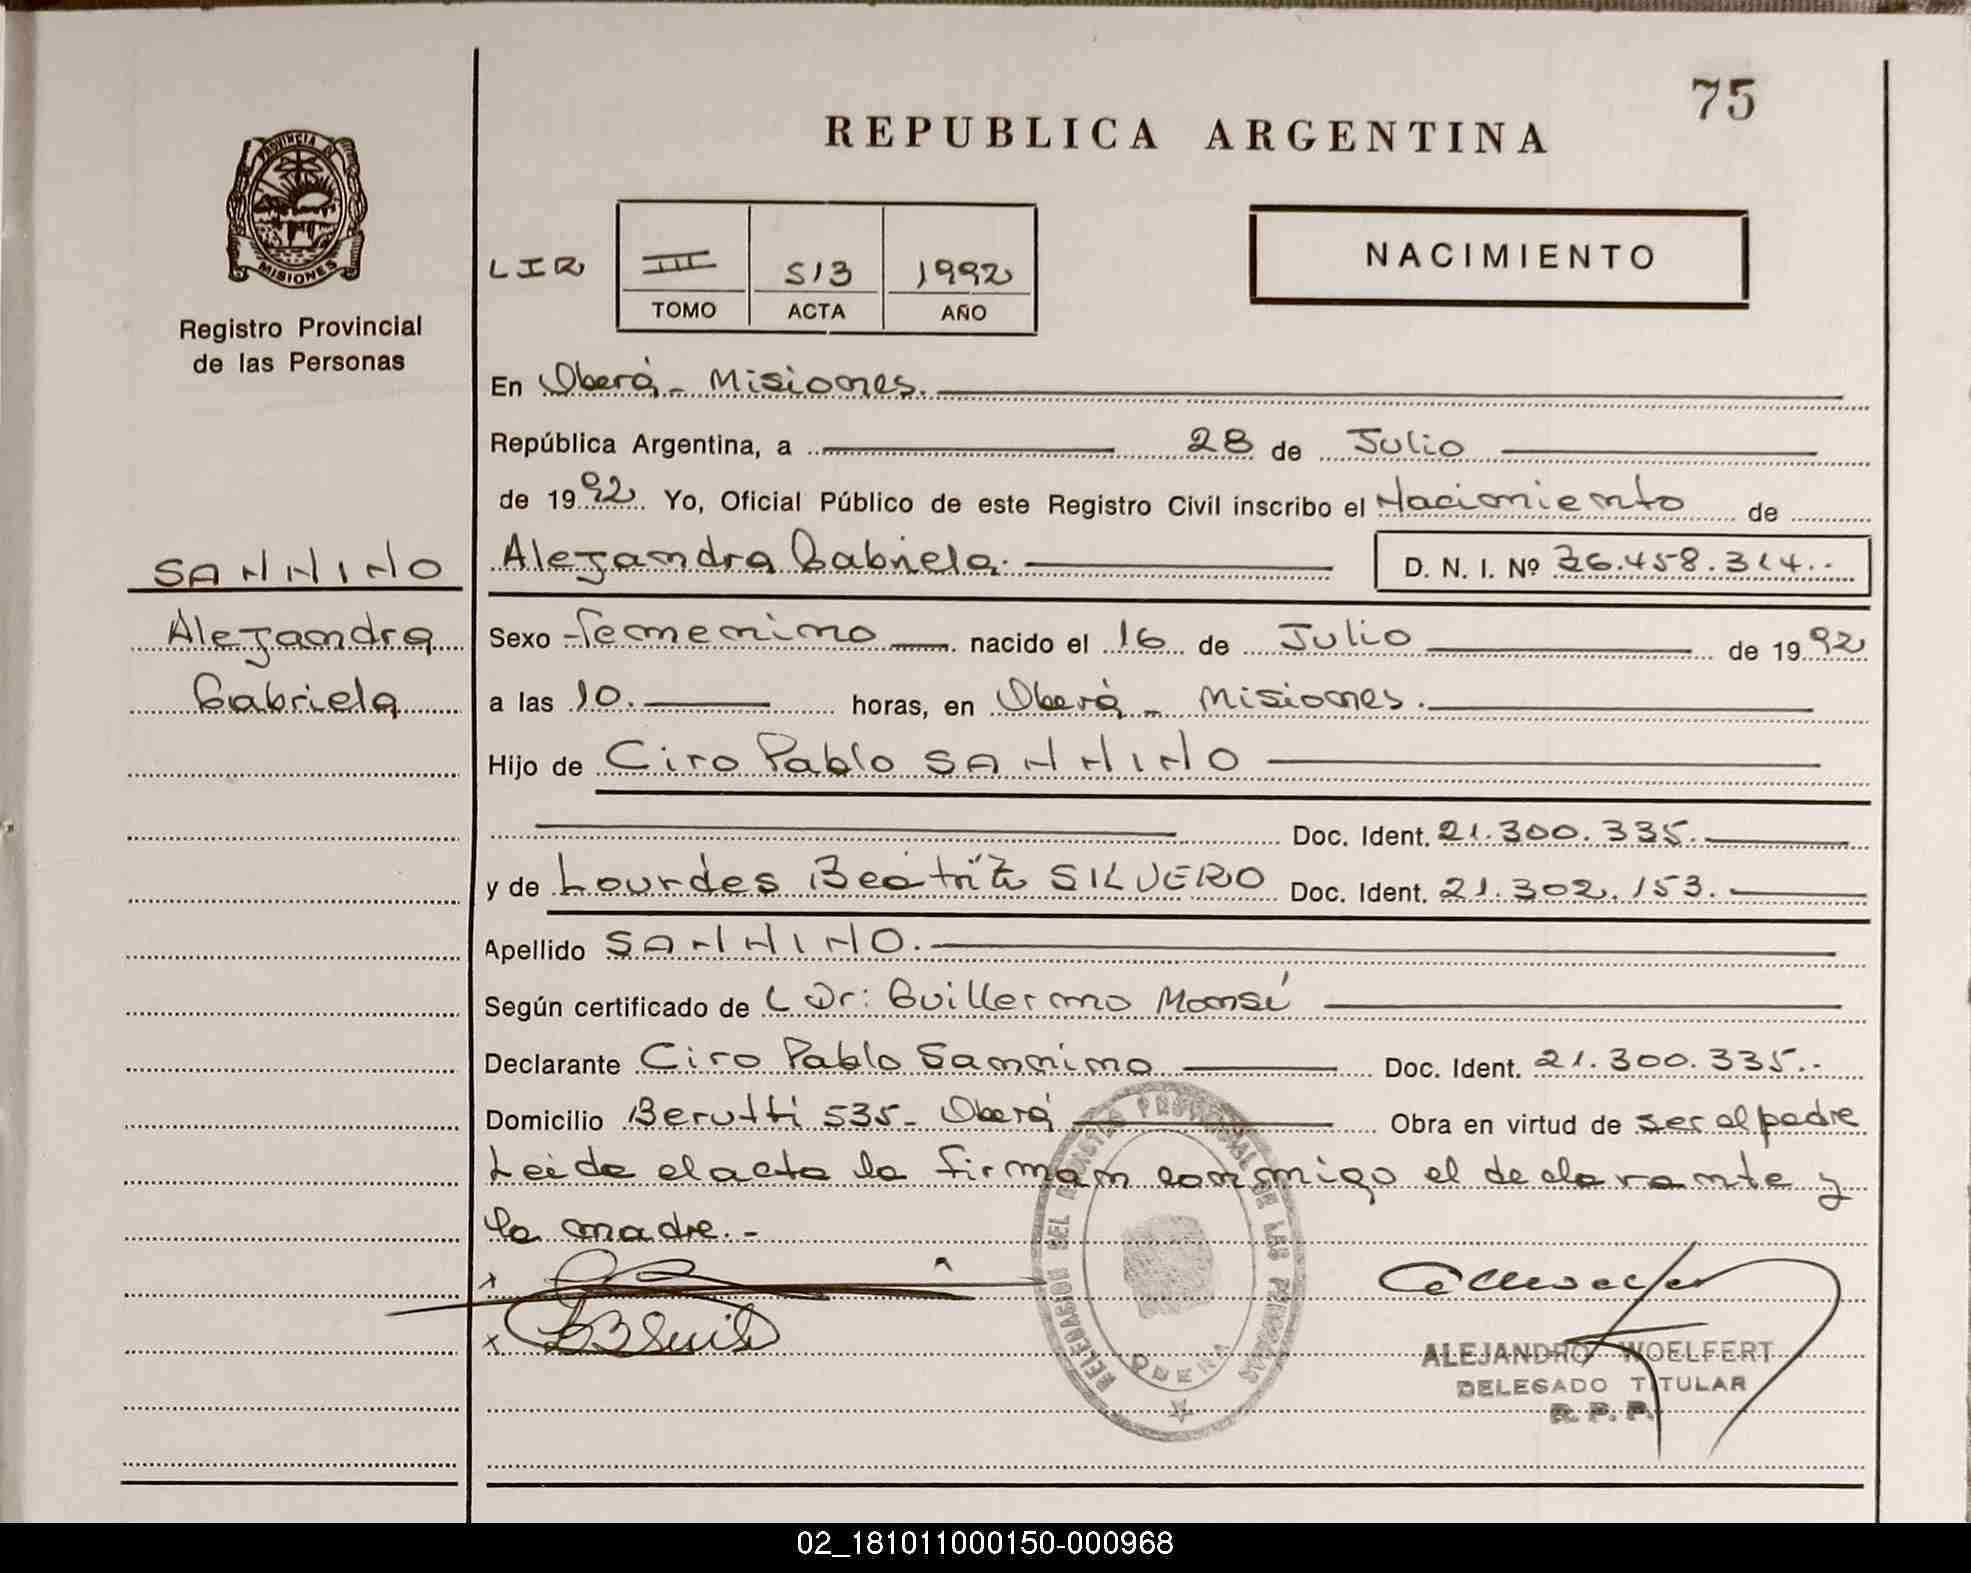 75
REPUBLICA ARGENTINA
PROVINCIA DE
MISIONES
Registro Provincial
de las Personas
NACIMIENTO
LIR III 513 1992
TOMO ACTA AÑO
En Oberá - Misiones.
República Argentina, a 28 de Julio
de 1992. Yo, Oficial Público de este Registro Civil inscribo el Nacimiento de
SANNINO
Alejandra Gabriela
Alejandra Gabriela. D. N. I. Nº 36.458.314.-
Sexo Femenino nacido el 16 de Julio de 1992
a las 10. horas, en Oberá - Misiones.
Hijo de Ciro Pablo SANNINO
Doc. Ident. 21.300.335.
y de Lourdes Beatríz SILVERO Doc. Ident. 21.302.153.
Apellido SANNINO.
Según certificado de Dr: Guillermo
Declarante Ciro Pablo Sannino Doc. Ident. 21.300.335.-
Domicilio Berutti 535- Oberá Obra en virtud de ser el padre
Leida el acta la firman conmigo el declarante y
la madre.-
x
x
DELEGACION DEL REGISTRO PROVINCIAL DE LAS PERSONAS
OBERA
ALEJANDRO WOELFERT
DELEGADO TITULAR
R. P. P.
02_181011000150-000968